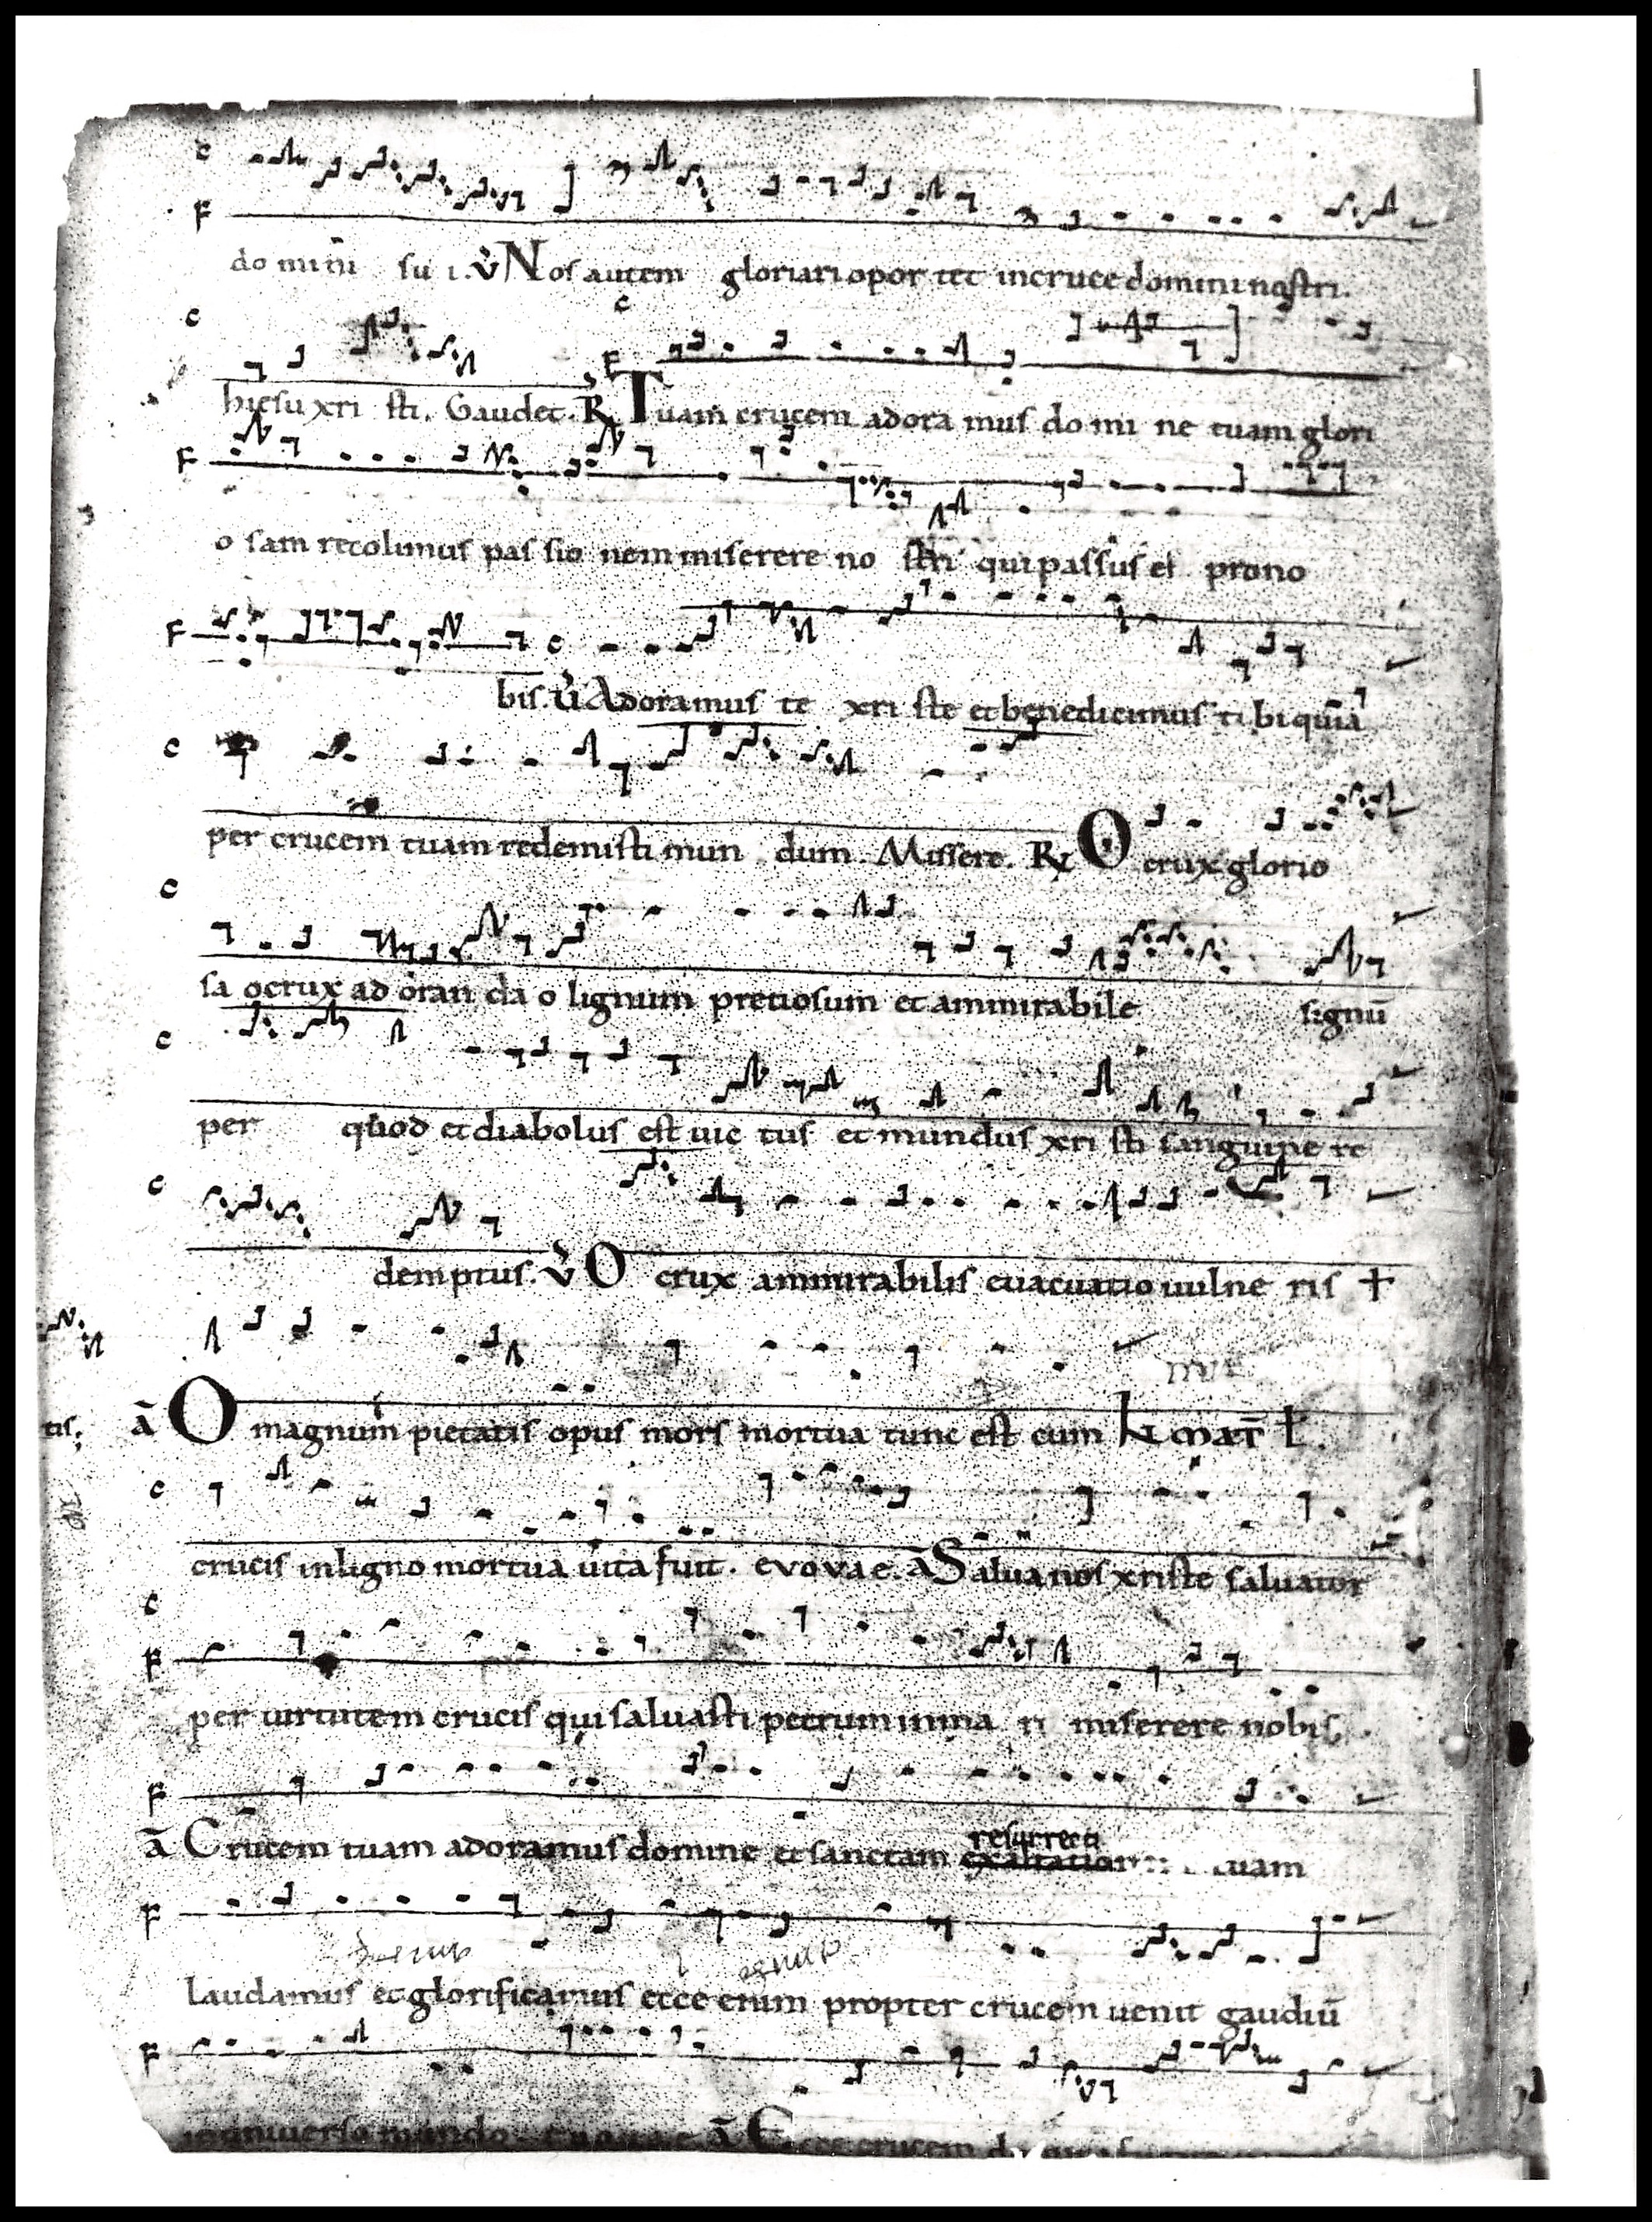 do mini su i. V Nos autem gloriari opor tet incruce domini nostri.
hiesu xri sti. Gaudet. R Tuam crucem adora mus do mi ne tuam glori
o sam recolimus pas sio nem miserere no stri qui passus es prono
bis. V Adoramus te xri ste et benedicimus ti bi quia
per crucem tuam redemisti mun dum. Missere. R O crux glorio
sa o crux ad oran da o lignum pretiosum et ammirabile signū
per quod et diabolus est uic tus et mundus xri sti sanguine re
demptus. V O crux ammirabilis euacuatio uulne ris +
tis. ā O magnum pietatis opus mors mortua tunc est cum
crucis inligno mortua uita fuit. evovae. ā Salua nos xriste saluator
per uirtutem crucis qui saluasti petrum inma ri miserere nobis.
ā Crucem tuam adoramus domine et sanctam resurrecti exaltation tuam
laudamus et glorificamus ecce enim propter crucem uenit gaudiū
inuniuerso mundo. ā Ecce crucem